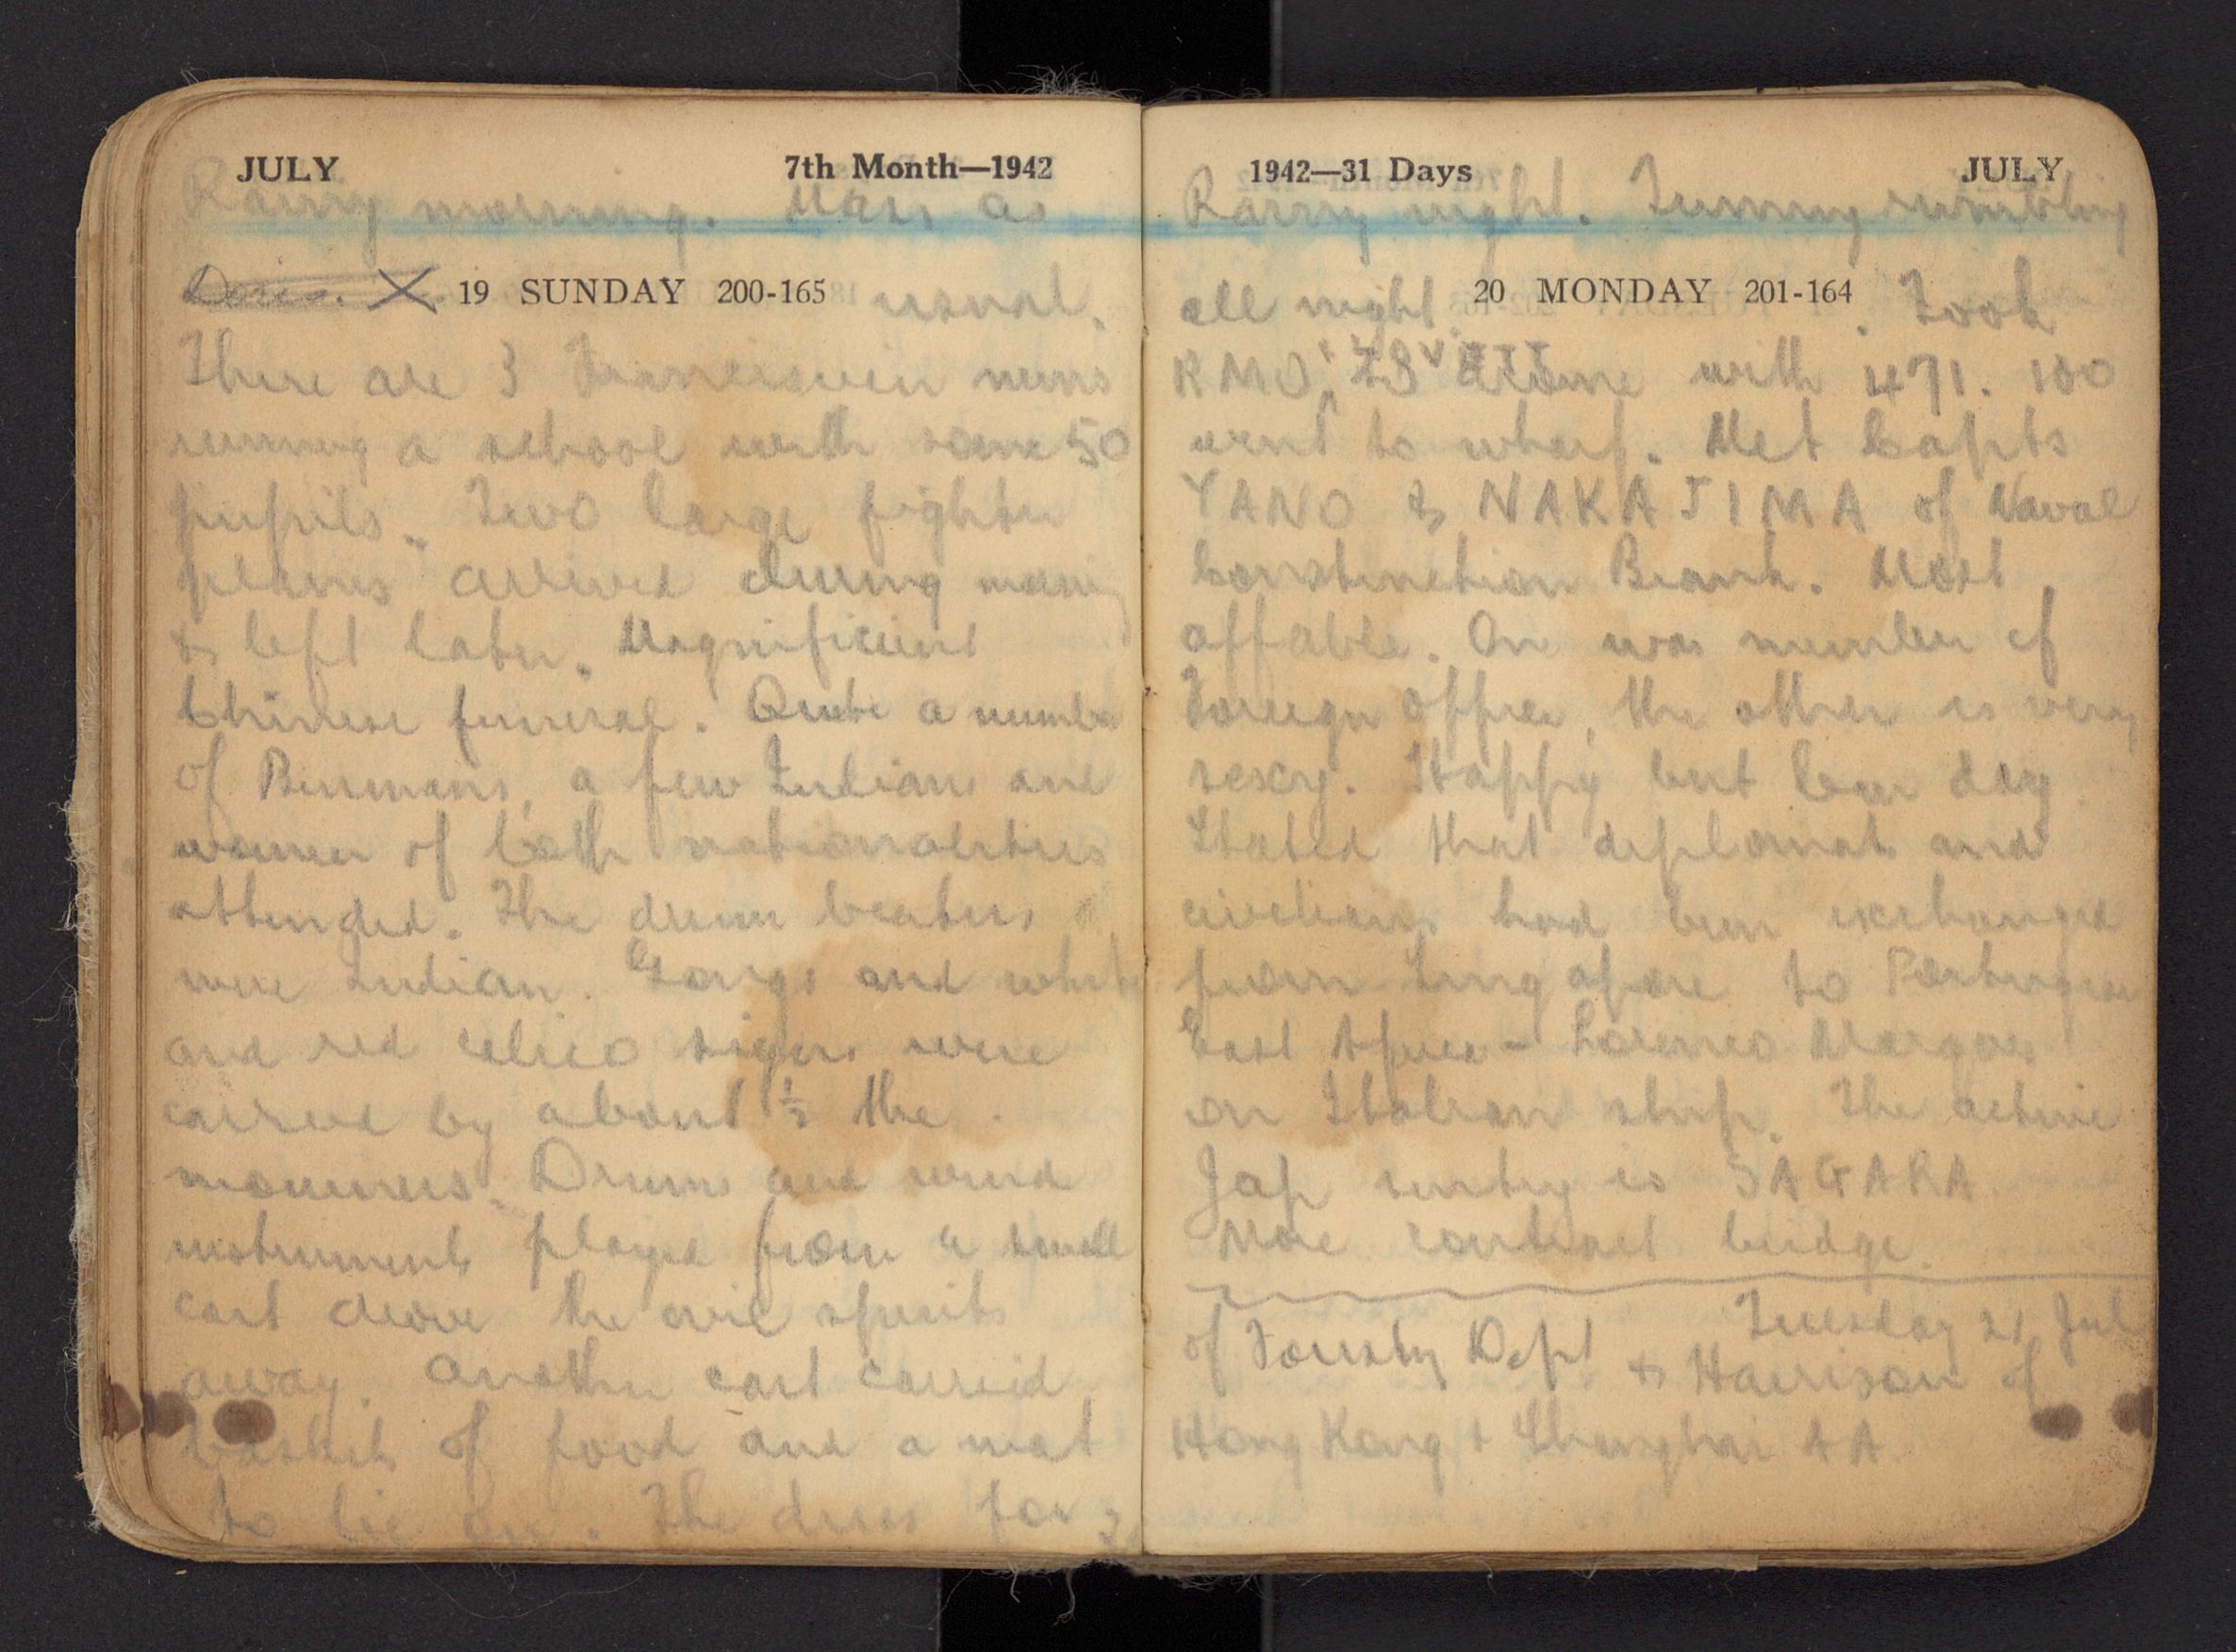 JULY 7th Month—1942
Rainy morning. Mass as
19 SUNDAY 200-165 usual.
There are 3 Franciscian nuns
running a school with some 50
pupils. Two large fighter
planes arrived during
& left later. Magnificient
Chinese funeral. Quite a number
of Burmans, a few Indians and
women of both nationalities
attended. The drum beaters
were Indian. and white
and red calico signs were
carried by about ½ the
mourners. Drums and wind
instruments played from a small
cart drove the evil spirits
away. Another cart carried
baskets of food and a mat
to lie on. The dress for
1942—31 Days JULY
Rainy night. Tummy rumbling
all night. 20 MONDAY 201-164 Took
with 471. 100
went to wharf. Met Capts
YANO & NAKAJIMA of Naval
Construction Branch. Most
affable. On was member of
Foreign Office, the other is very
sexy. Happy but day
Stated that diplomats and
civilians had been exchanged
from Singapore to Portugese
East Africa - Lorenco Marques
on Italian ship. The
Jap sentry is SAGARA
More contract bridge.
Tuesday 21 Jul
of Forestry Dept & Harrison of
Hong Kong & Shanghai AA.